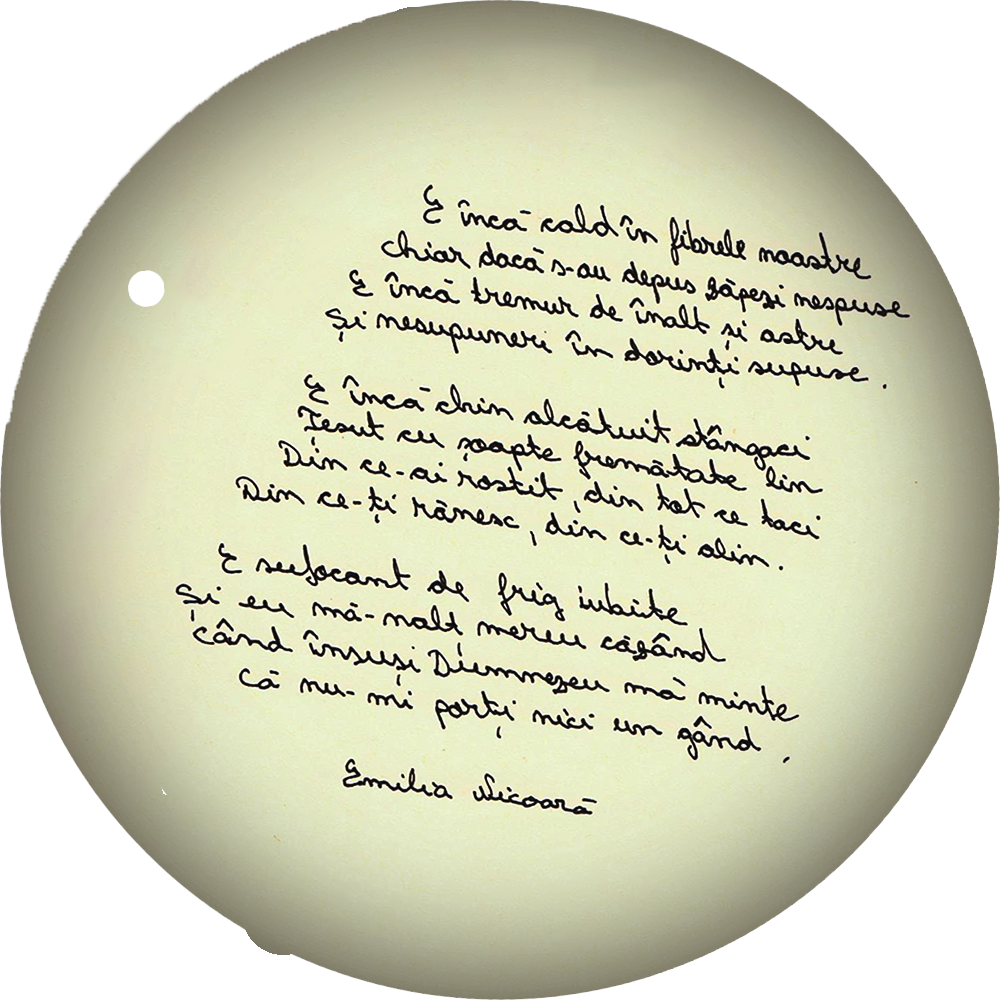 E încă cald în fibrele noastre
chiar dacă s-au depus zăpezi nespuse
E încă tremur de înalt și astre
Și nesupuneri în dorinți supuse.
E încă chin alcătuit stângaci
Țesut cu șoapte fremătate lin
Din ce-ai rostit, din tot ce taci
Din ce-ți rănesc, din ce-ți alin.
E sufocant de frig iubite
Și eu mă-nalț mereu căzând
când însuși Dumnezeu mă minte
Că nu-mi porți nici un gând.
Emilia Nicoară